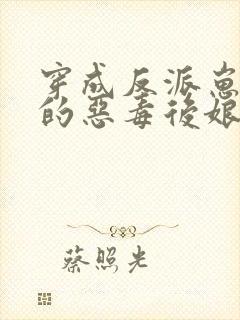 穿成反派崽
的惡毒後娘
蔡照光